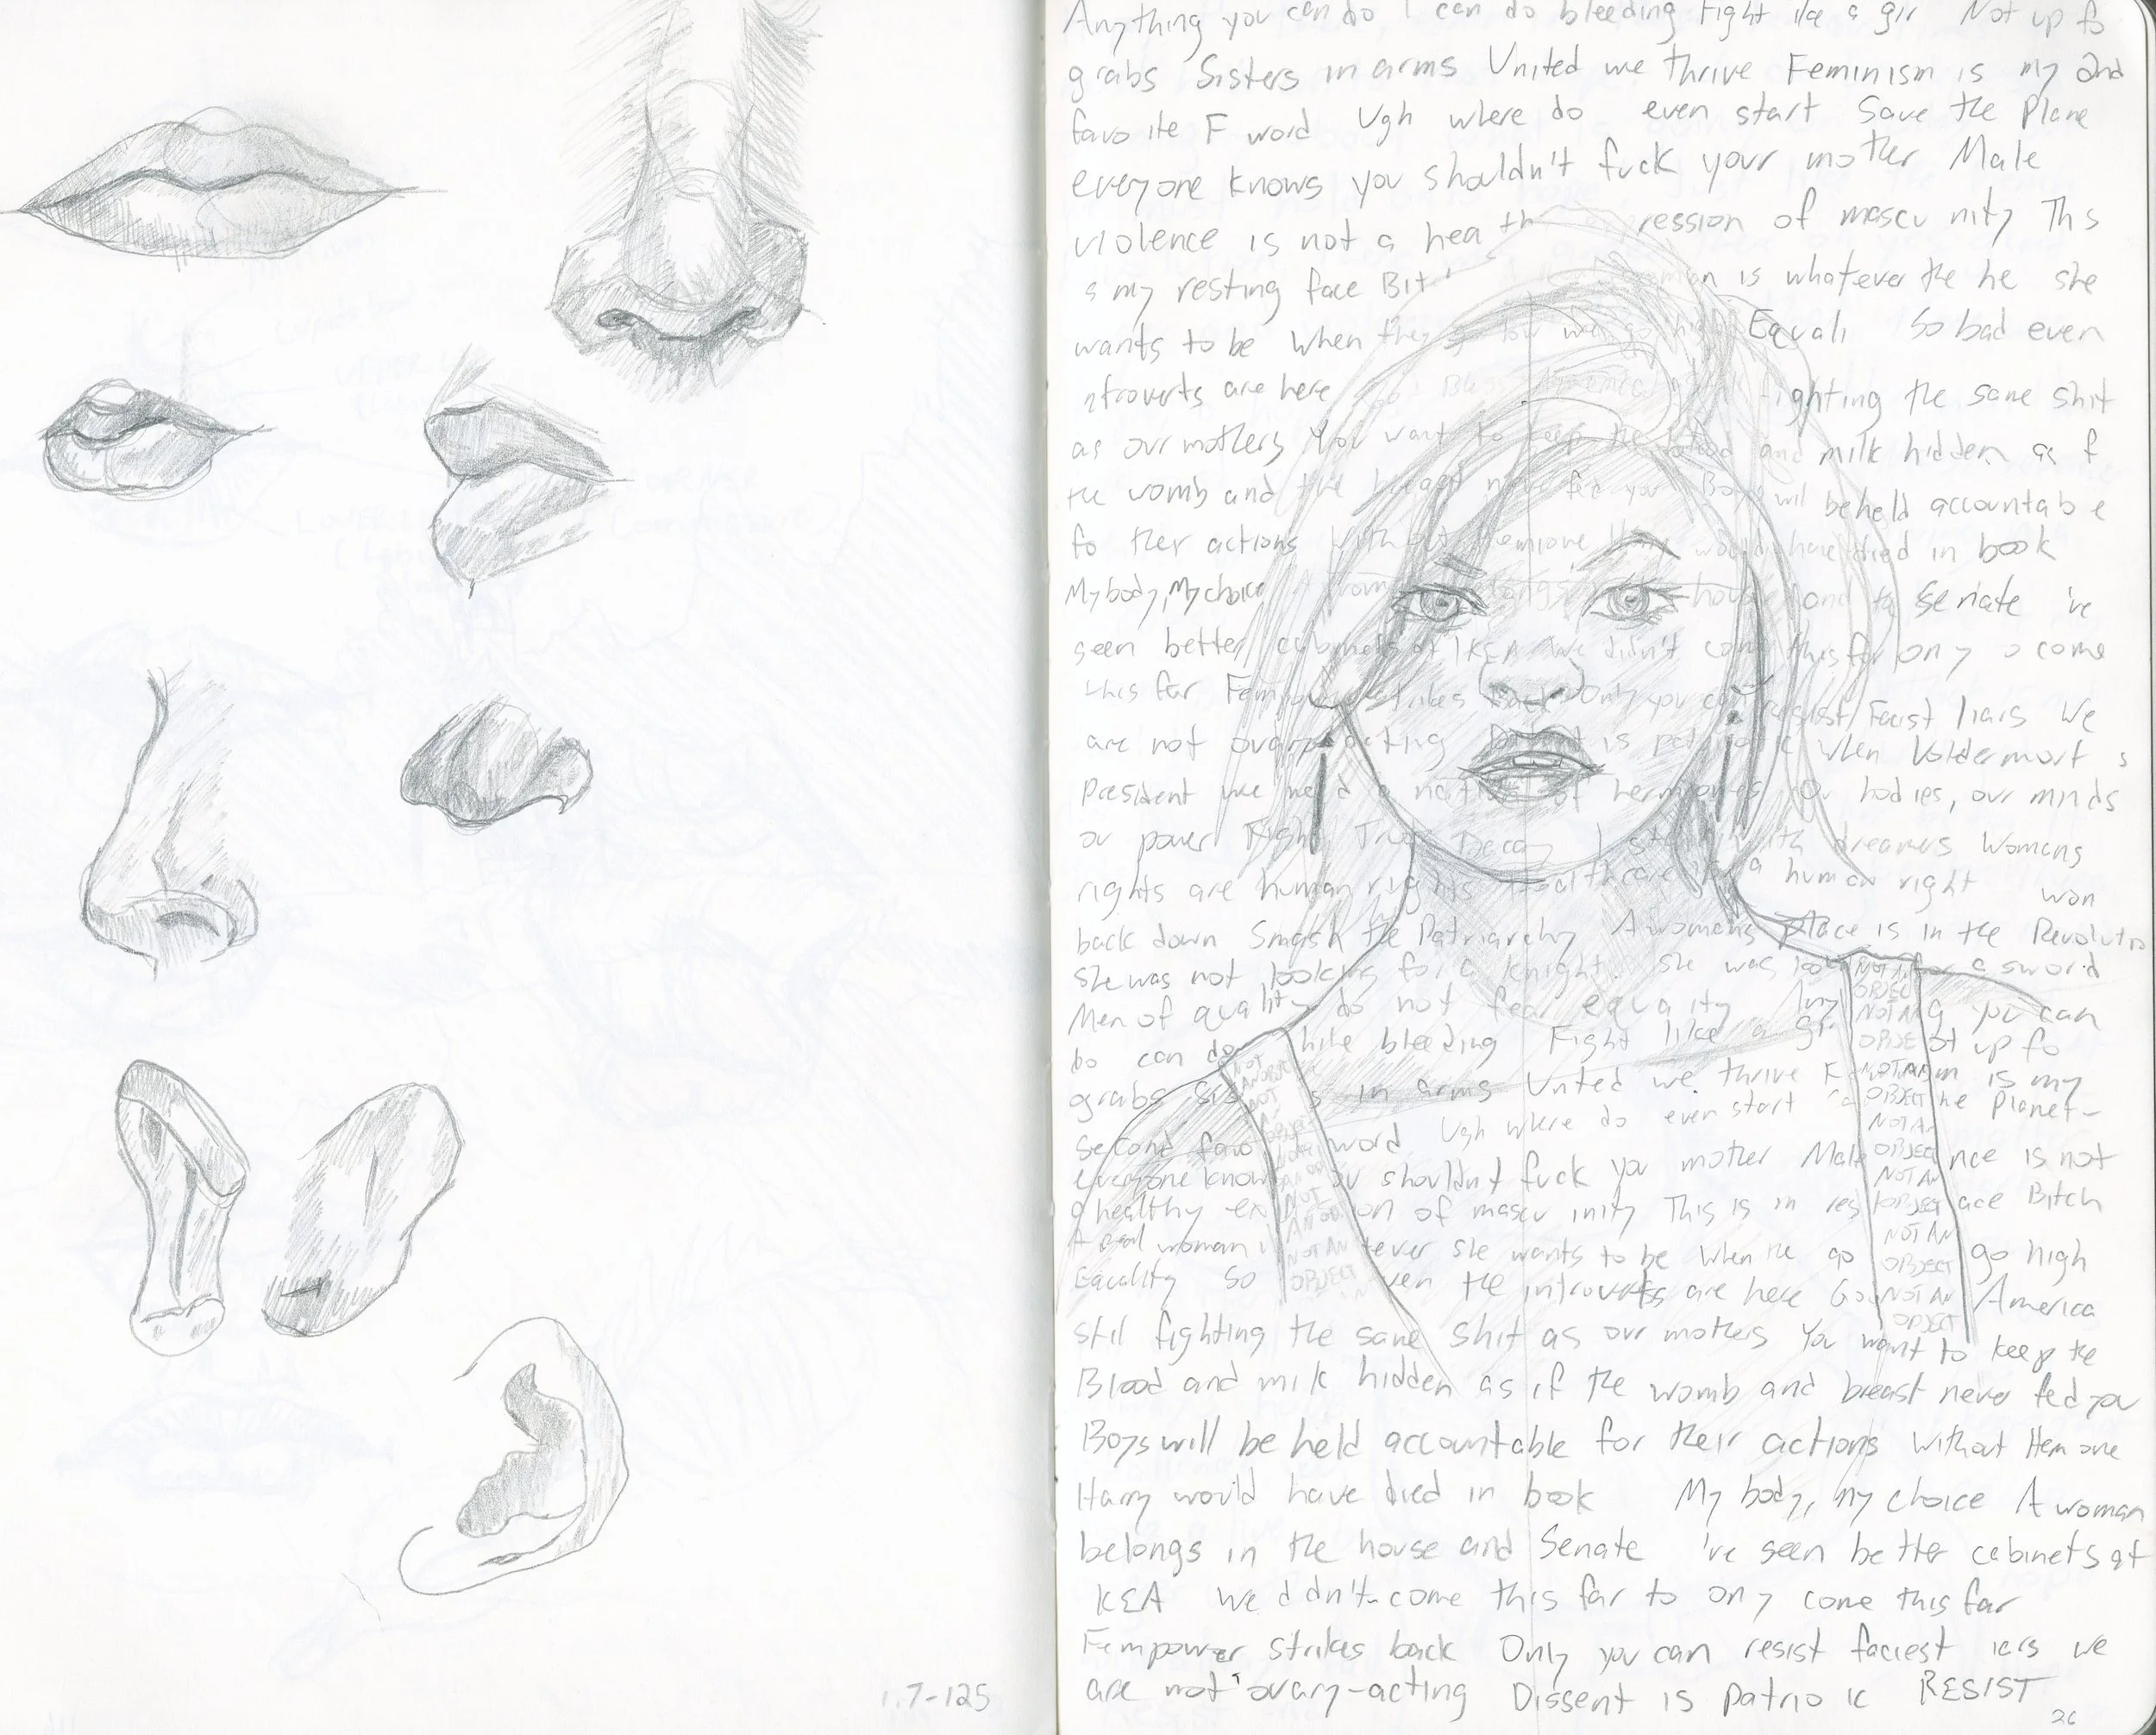 Anything you can do I can do bleeding Fight like a gir Not up fo
grabs Sisters in arms United we thrive Feminism is my 2nd
favo ite F word Ugh where do even start Save the Plane
everyone knows you shouldn't fuck your mother Male
violence is not a hea th ression of mascu nity Ths
s my resting face Bit man is whatever the he she
wants to be When they go low we go high Equali So bad even
ntroverts are here God Bless fighting the same shit
as our mothers You want to keep the blood and milk hidden as f
the womb and the breast never fed you Boys will be held accountab e
fo ther actions Without Hemione Harry would have died in book
My body, My choice A woman belongs house and ta Senate 've
seen better cabinets at IKEA We didn't come this far on y o come
this far Fempower strikes back Only you can resist Facist liars We
are not ovary-acting Dissent is patrio ic When Voldermort s
President we need a nation of hermiones Ou bodies, our minds
ou power Fight Truth Decay I stand with dreamers Womans
rights are human rights Healthcare is a human right won
back down Smash the Patriarchy A womans place is in the Revolutio
She was not looking for a knight. She was look for a sword
Men of quality do not fear equa ity Any g you can
do can do hile bleeding Fight like a gir ot up fo
grabs Sis s in arms Unted we thrive F m is my
second favo word Ugh where do even start he Planet-
everyone know ou shouldn't fuck you mother Male nce is not
a healthy ex on of mascu inity This is m res ace Bitch
A real woman i tever she wants to be When the go go high
Equality So ven the introverts are here Go America
stil fighting the same shit as our mothers You want to keep the
Blood and milk hidden as if the womb and breast never fed you
Boys will be held accountable for their actions Without Hem one
Harry would have died in book My body, my choice A woman
belongs in the house and Senate 've seen better cabinets at
KEA We d dn't come this far to on y come this far
Fempower strikes back Only you can resist faciest iars We
are not ovary-acting Dissent is patrio ic RESIST
NOT AN
OBJECT
NOT AN
OBJECT
NOT AN
OBJECT
NOT AN
OBJECT
NOT AN
OBJECT
NOT AN
OBJECT
NOT AN
OBJECT
NOT
AN OBJECT
NOT
NOT
NOT AN
OBJECT
1.7-125
26